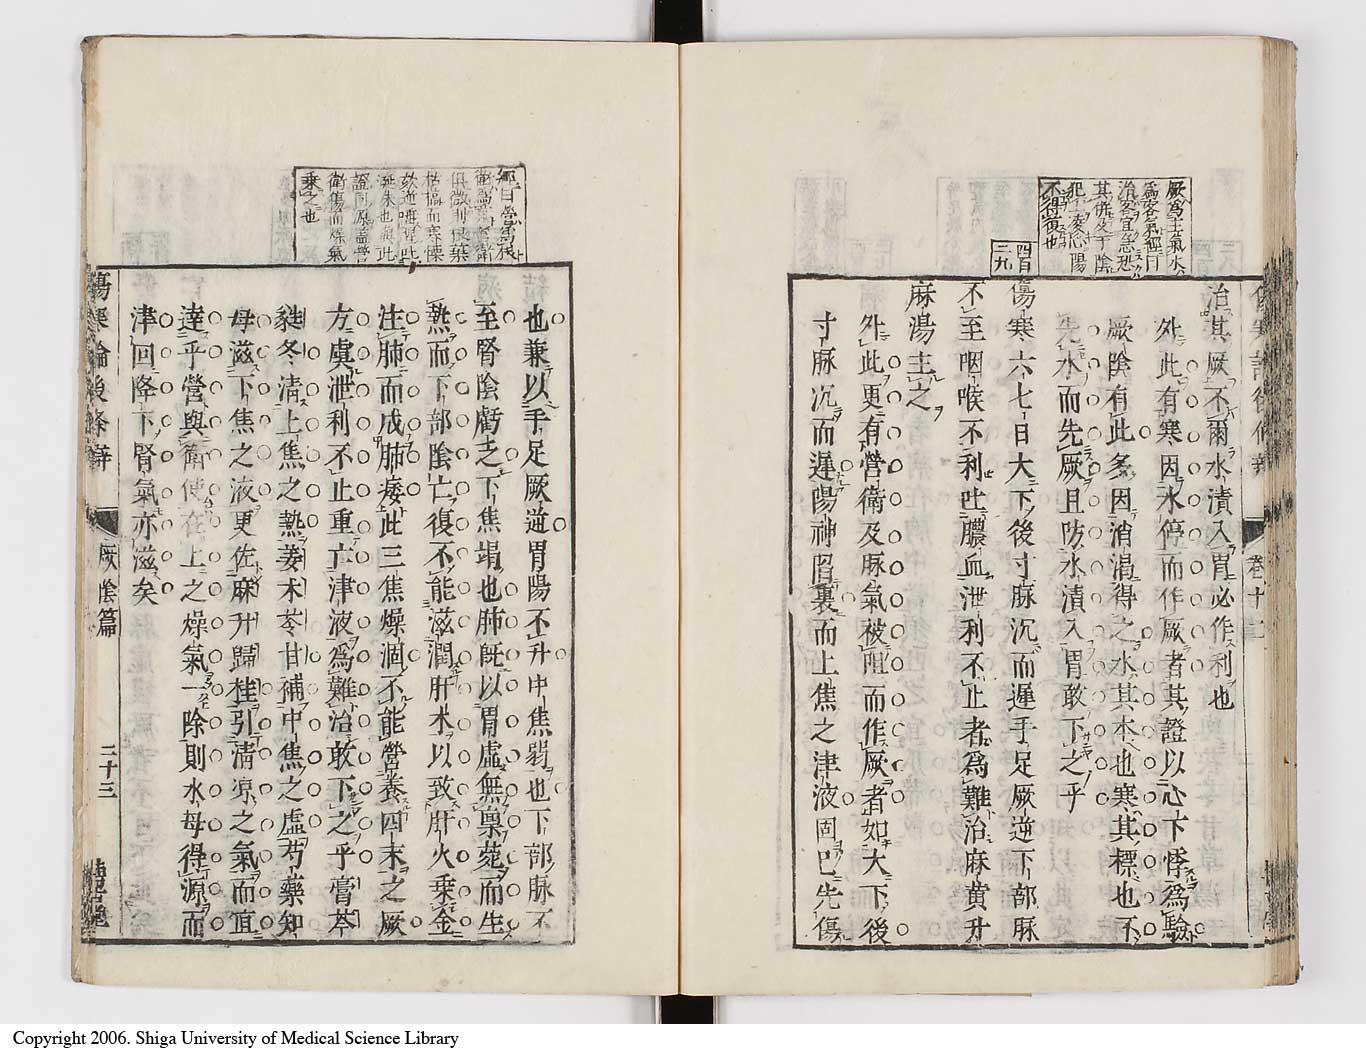 厥爲主氣水
爲客氣經曰
治客宜急恐
其併及于陰
犯
不得復也
四百
二九
治其厥不爾水漬入胃必作利也
外此有寒因水停而作厥者其證以心下悸爲驗
厥陰有此多因消渴得之水其本也寒其標也不
先水而先厥且防水漬入胃敢下之乎
傷寒六七日大下後寸脉沉而遲手足厥逆下部脉
不至咽喉不利吐膿血泄利不止者爲難治麻黄升
麻湯主之
外此更有營衛及脉氣被阻而作厥者如大下後
寸脉沉而遲陽神陷裏而上焦之津液固已先傷
也兼以手足厥逆胃陽不升中焦弱也下部脉不
至腎陰虧乏下焦竭也肺旣以胃虛無稟䕃而生
熱而下部陰亡復不能滋潤肝木以致肝火乗金
注肺而成肺痿此三焦燥涸不能營養四末之厥
方虞泄利不止重亡津液爲難治敢下之乎膏芩
蕤冬清上焦之熱姜术苓甘補中焦之虛芍藥知
母滋下焦之液更佐麻升歸桂引淸凉之氣而直
達乎營與衛使在上之燥氣一除則水母得源而
津回降下腎氣亦滋矣
經曰營爲
枯槁而寒慄
欬逆唾腥
證同原盖營
衛傷而燥氣
乗之也
傷寒論後條辯
厥陰篇
二十三
卷十二
Copyright 2006. Shiga University of Medical Science Library